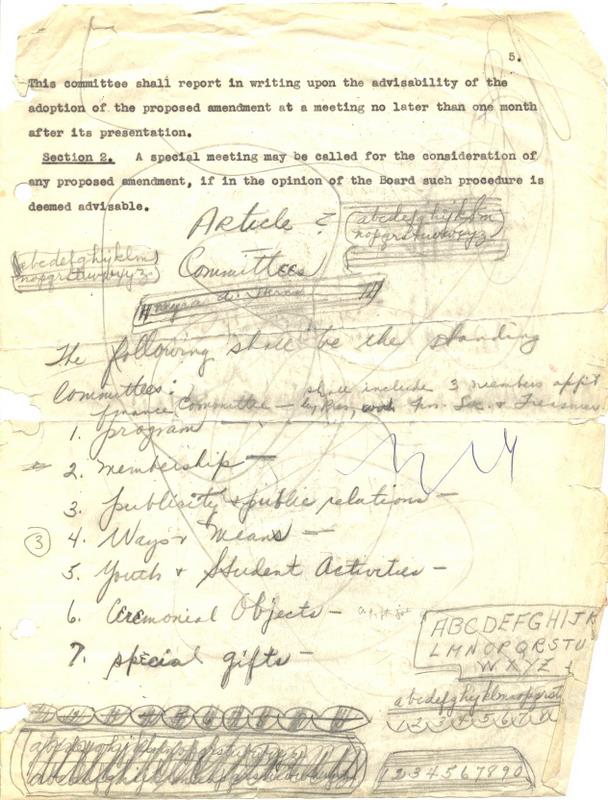 5.
This committee shall report in writing upon the advisability of the
adoption of the proposed amendment at a meeting no later than one month
after its presentation.
Section 2. A special meeting may be called for the consideration of
any proposed amendment, if in the opinion of the Board such procedure is
deemed advisable.
Article ?
abcdefghijklm
nopqrstuvwxyz
abcdefghijklm
nopqrstuvwxyz
Committees
The following shall be the standing
Committees:
shall include 3 members
finance Committee — by Pres, Fin. Sec. & Treasurer
1. program —
2. membership —
3. publicity & public relations —
3
4. Ways & Means —
5. Youth & Student Activities —
6. Ceremonial Objects —
7. special gifts —
ABCDEFGHIJK
LMNOPQRSTU
WXYZ
abcdefghijklmnopqrst
1 2 3 4 5 6 7
1234567890